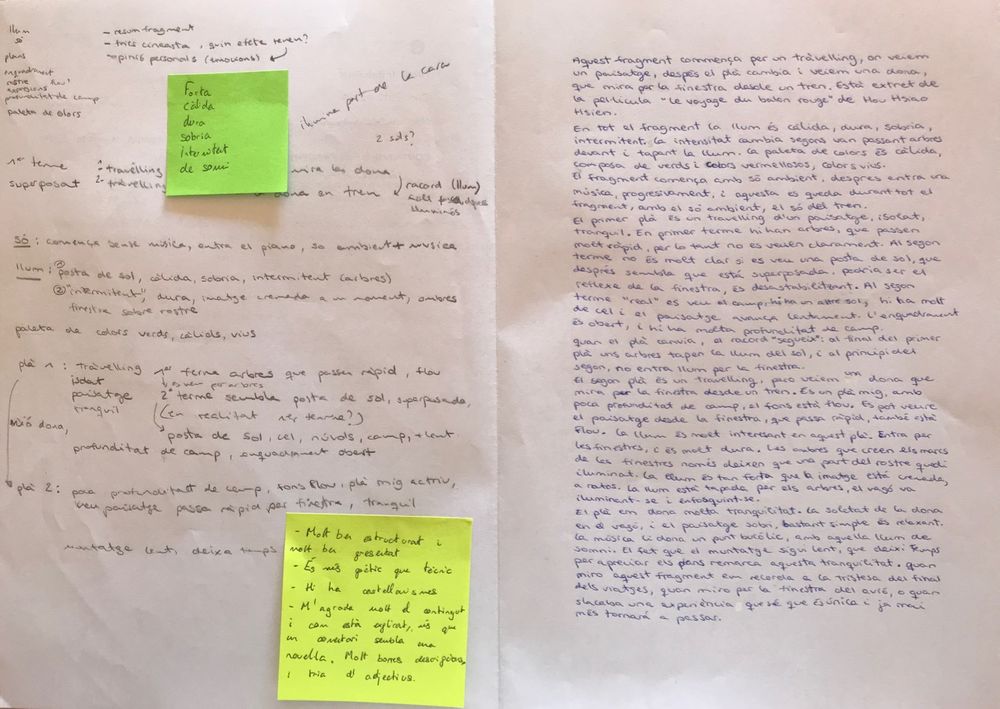 llum
só
plans
enquadrament
rostre flou?
expressions
profunditat de camp
paleta de colors
- resum fragment
- tries cineasta, quin efecte tenen?
- opinió personals (emocions)
Forta
càlida
dura
sobria
intermitent
de somni
ilumina part de la cara
2 sols?
1er terme 1- travelling
superposat 2- travelling
mira la dona
dona en tren
racord (llum)
lluminós
Só: comença sense música, entra el piano, so ambient + musica
llum: ① posta de sol, càlida, sobria, intermitent (arbres)
② "intermitent", dura, imatge cremada a un moment, ombres
finestra sobre rostre
paleta de colors verds, càlids, vius
plà 1: tràvelling
isolat
paisatge
tranquil
1er terme arbres que passen ràpid, flou
es veu per arbres
2n terme sembla posta de sol, superposada,
(en realitat 1er terme?)
posta de sol, cel, núvols, camp, + lent
profunditat de camp, enquadrament obert
dona,
plà 2: poca profunditat de camp, fons flou, plà mig
veu paisatge passa ràpid per finestra, tranquil
muntatge lent, deixa temps
- Molt ben estructurat i
molt ben presentat
- És més poètic que tècnic
- Hi ha castellanismes
- M'agrada molt el contingut
i com està explicat, més que
un comentari sembla una
novella. Molt bones descripcions
i tria d'adjectius.
Aquest fragment comença per un tràvelling, on veiem
un paisatge, després el plà cambia i veiem una dona,
que mira per la finestra desde un tren. Està extret de
la pel·lícula "Le voyage du balon rouge" de Hou Hsiao
Hsien.
En tot el fragment la llum és càlida, dura, sobria,
intermitent. la intensitat cambia segons van passant arbres
devant i tapant la llum. la paleta de colors és càlida,
composa de verds i colors vermellosos, colors vius.
El fragment comença amb só ambient, despres entra una
música, progresivament, i aquesta es queda durant tot el
fragment, amb el só ambient, el só del tren.
El primer plà és un travelling d'un paisatge, isolat,
tranquil. En primer terme hi han arbres, que passen
molt ràpid, per lo tant no es veuen clarament. Al segon
terme no és molt clar si es veu una posta de sol, que
després sembla que está superposada. podria ser el
reflexe de la finestra, és desastabilitzant. Al segon
terme "real" es veu el camp, hi ha un altre sol, hi ha molt
de cel i el paisatge avança lentament. l'enquadrament
és obert, i hi ha molta profunditat de camp.
quan el plà canvia, el racord "segueix": al final del primer
plà uns arbres tapen la llum del sol, i al principi del
segon, no entra llum per la finestra.
El segon plà és un travelling, pero veiem una dona que
mira per la finestra desde un tren. És un plà mig, amb
poca profunditat de camp, el fons està flou. Es pot veure
el paisatge desde la finestra, que passa ràpid, també està
flou. la llum és molt interesant en aquest plà. Entra per
les finestres, i és molt dura. Les ombres que creen els marcs
de les finestres només deixen que una part del rostre quedi
iluminat. la llum és tan forta que la imatge està cremada,
a ratos. la llum està tapada per els arbres, el vagó va
iluminant-se i enfosquint-se.
El plà em dona molta tranquilitat. La soletat de la dona
en el vagó, i el paisatge sobri, bastant simple és relaxant.
la música li dona un punt bucòlic, amb aquella llum de
somni. El fet que el muntatge sigui lent, que deixi temps
per apreciar els plans remarca aquesta tranquilitat. quan
miro aquest fragment em recorda a la tristesa del final
dels viatges, quan miro per la finestra del avió, o quan
s'acaba una experiència que sé que és única i ja mai
més tornarà a passar.